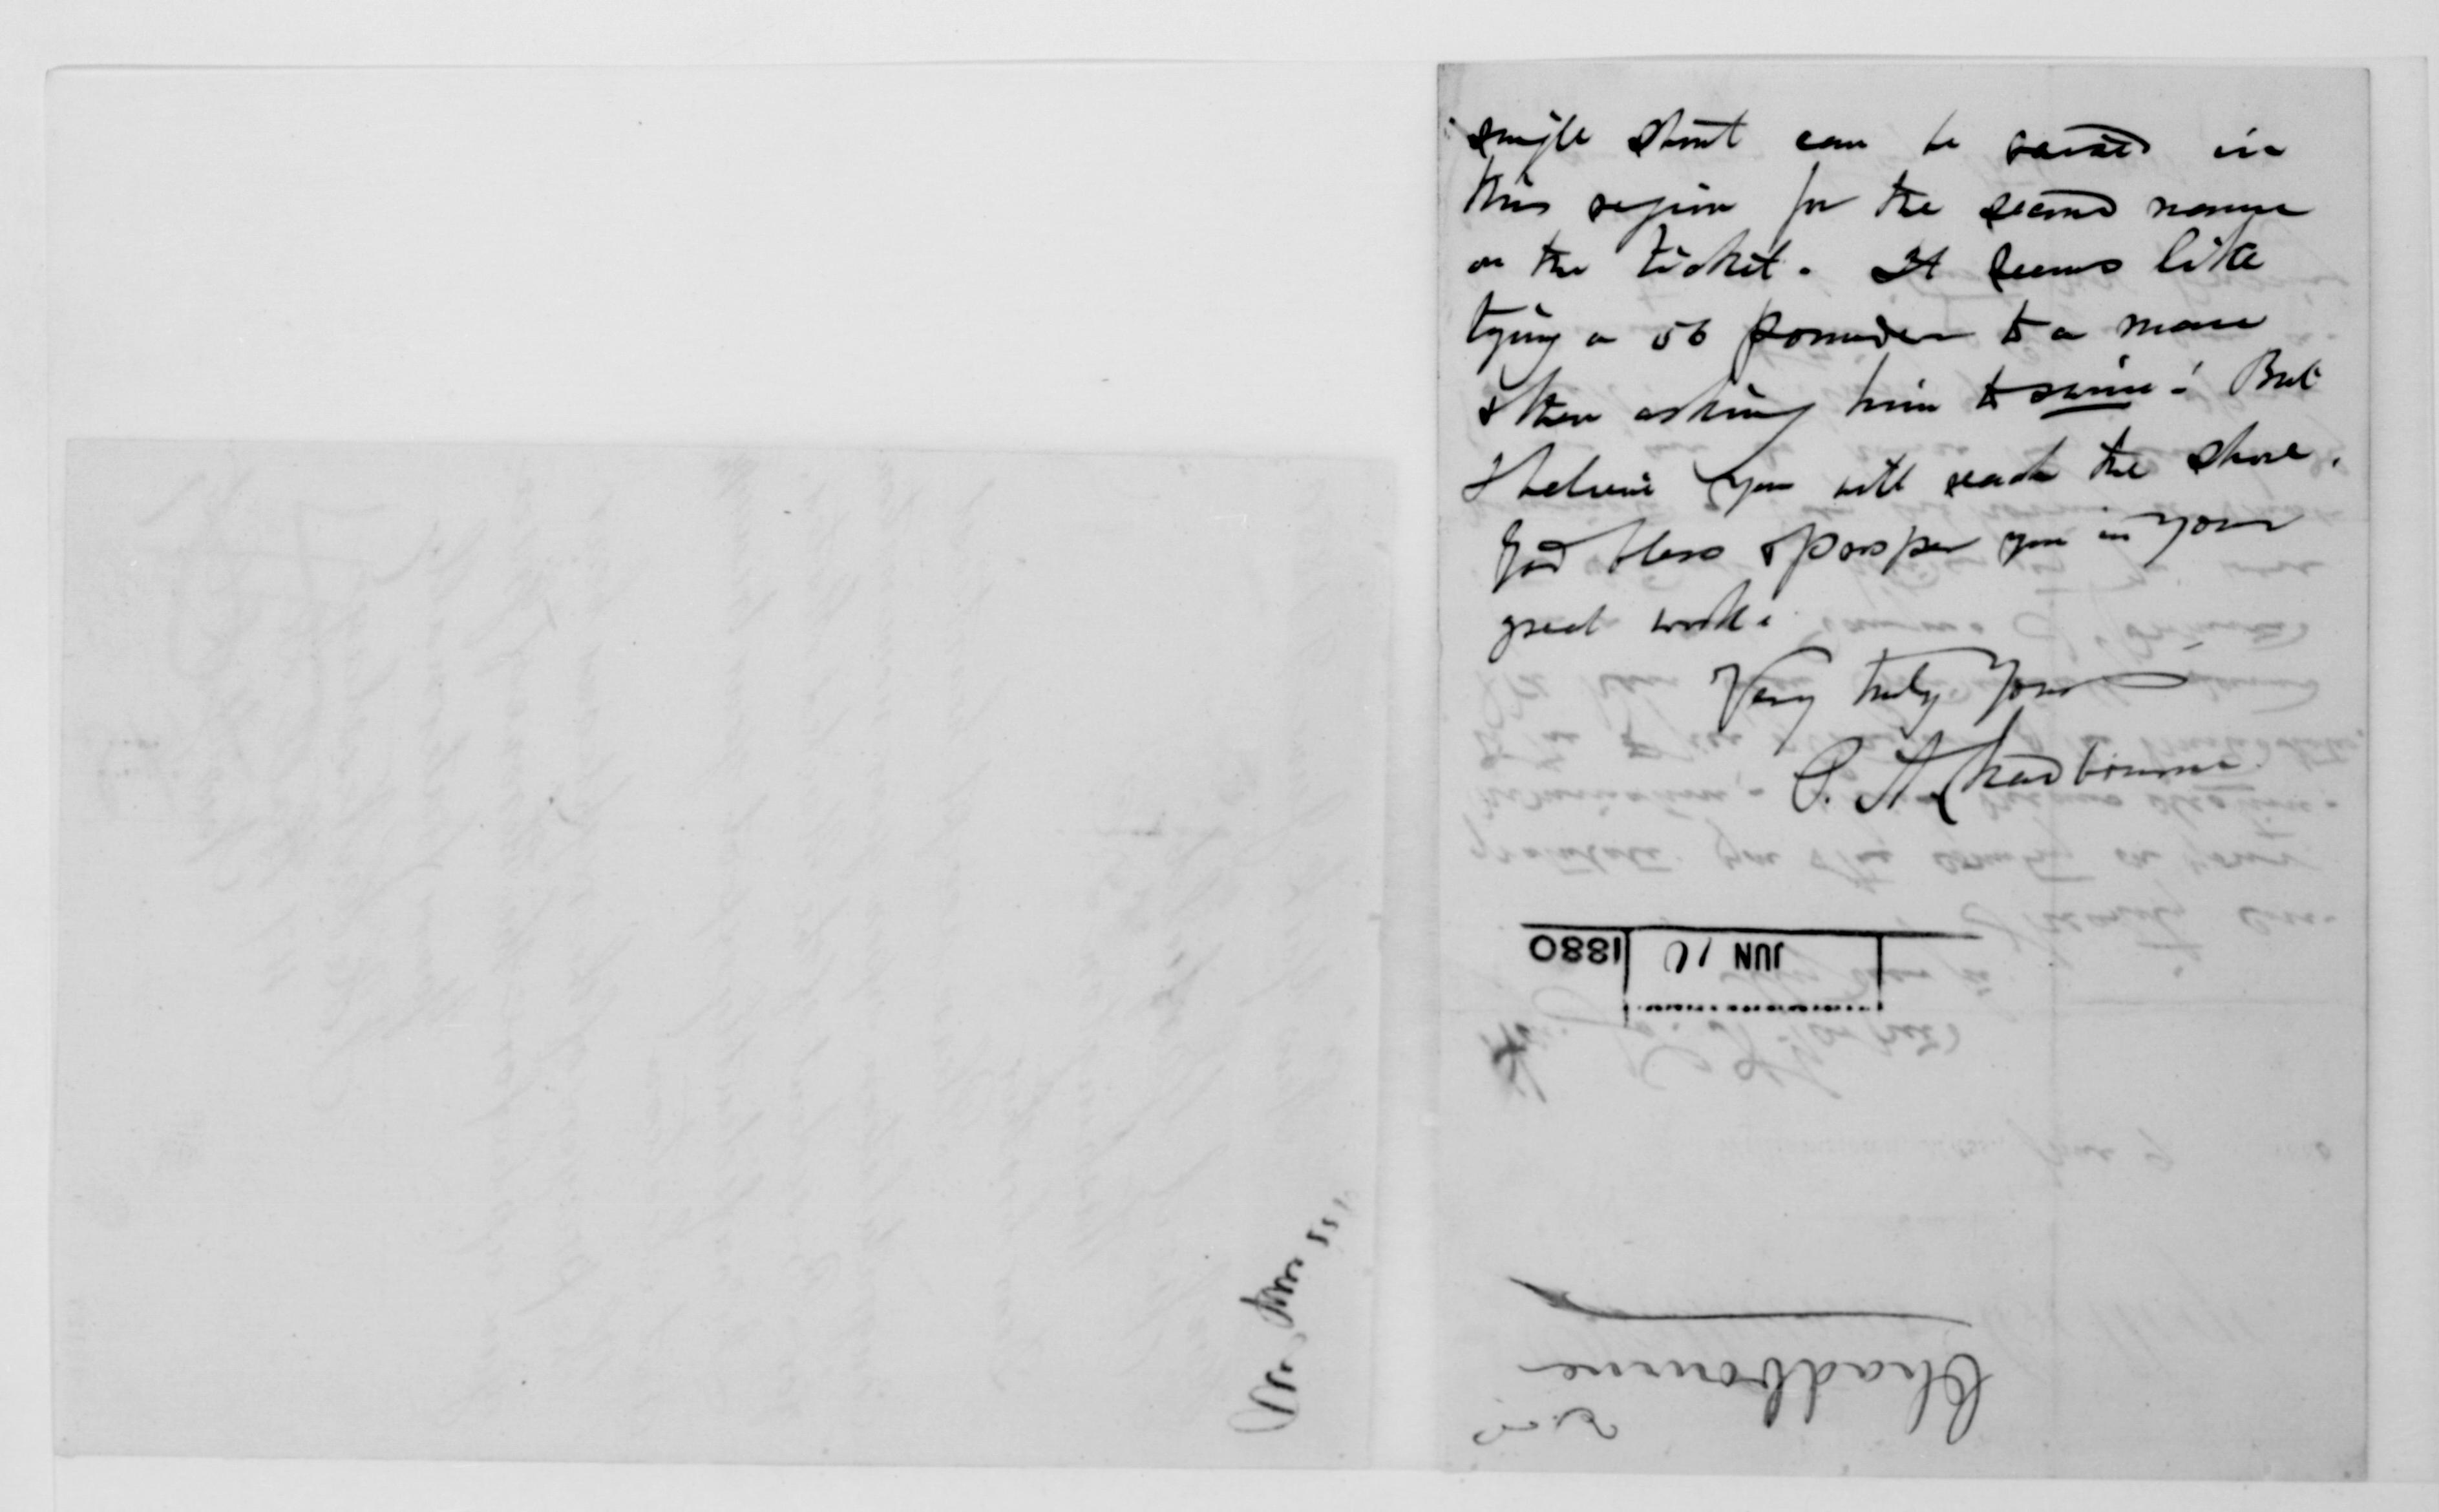 single shout can be raised in
this region for the second name
on the ticket. It seems like
tying a 56 pounder to a man
& then asking him to swim! But
I believe you will reach the shore.
God bless & prosper you in your
great work.
Very truly Yours
P. A. Chadbourne.
JUN 10 1880
Chadbourne